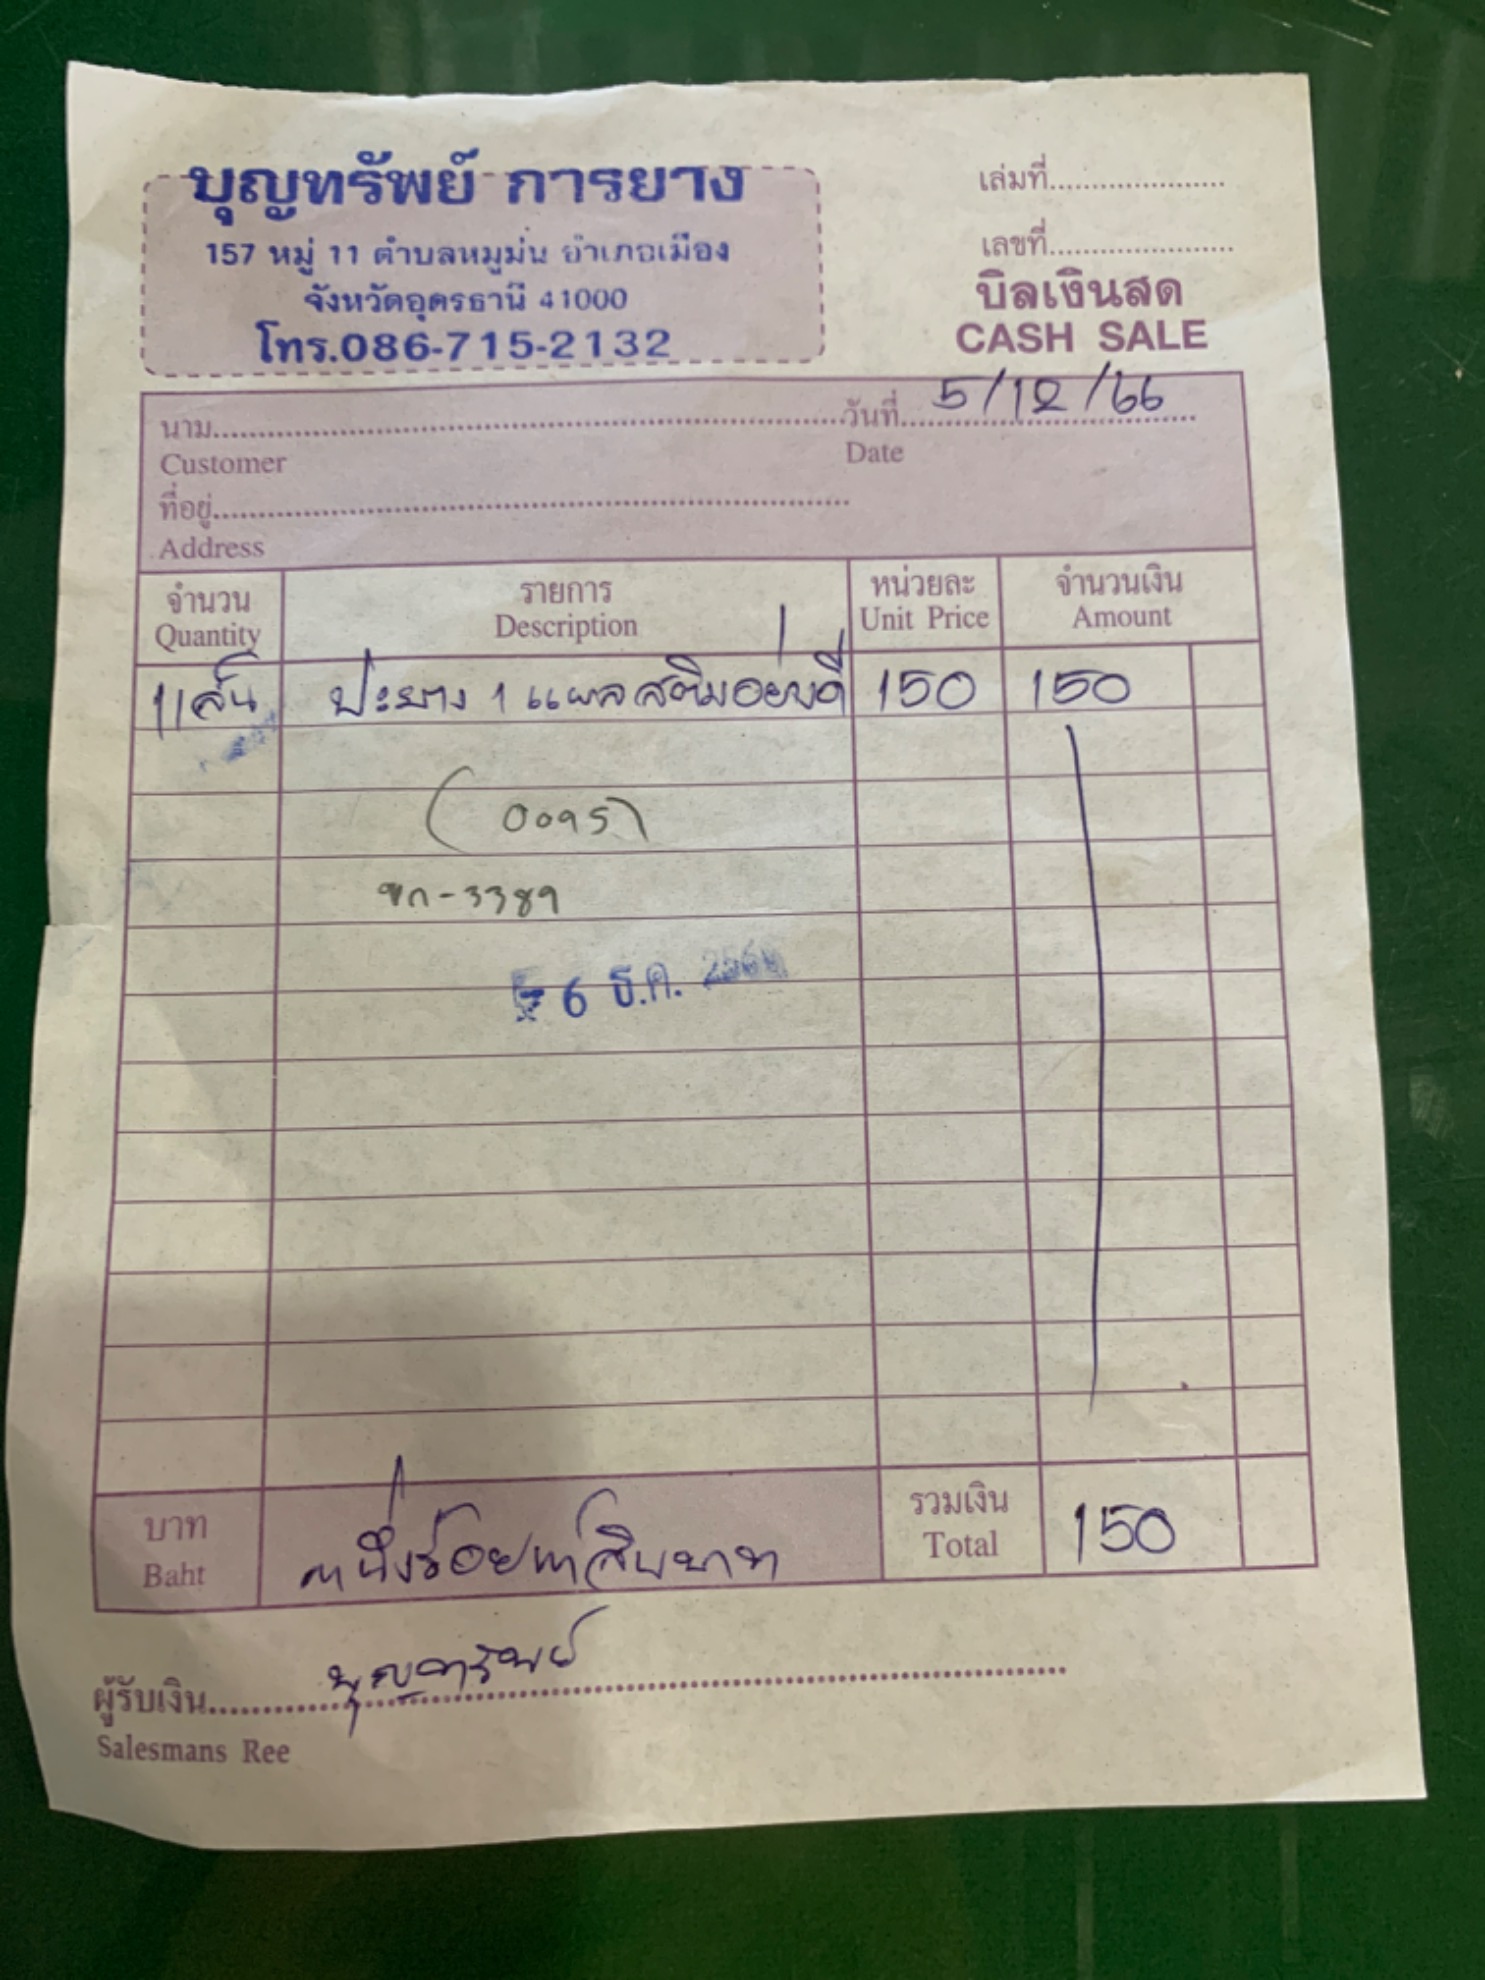 บุญทรัพย์ การยาง
157 หมู่ 11 ตำบลหมูม่น อำเภอเมือง
จังหวัดอุดรธานี 41000
โทร.086-715-2132
เล่มที่
เลขที่
บิลเงินสด
CASH SALE
นาม วันที่ 5/12/66
Customer Date
ที่อยู่
Address
จำนวน รายการ หน่วยละ จำนวนเงิน
Quantity Description Unit Price Amount
1 เส้น ปะยาง 1 แผลสตีมอย่างดี 150 150
3389
6 ธ.ค.
บาท หนึ่งร้อยห้าสิบบาท รวมเงิน 150
Baht Total
ผู้รับเงิน บุญทรัพย์
Salesmans Ree